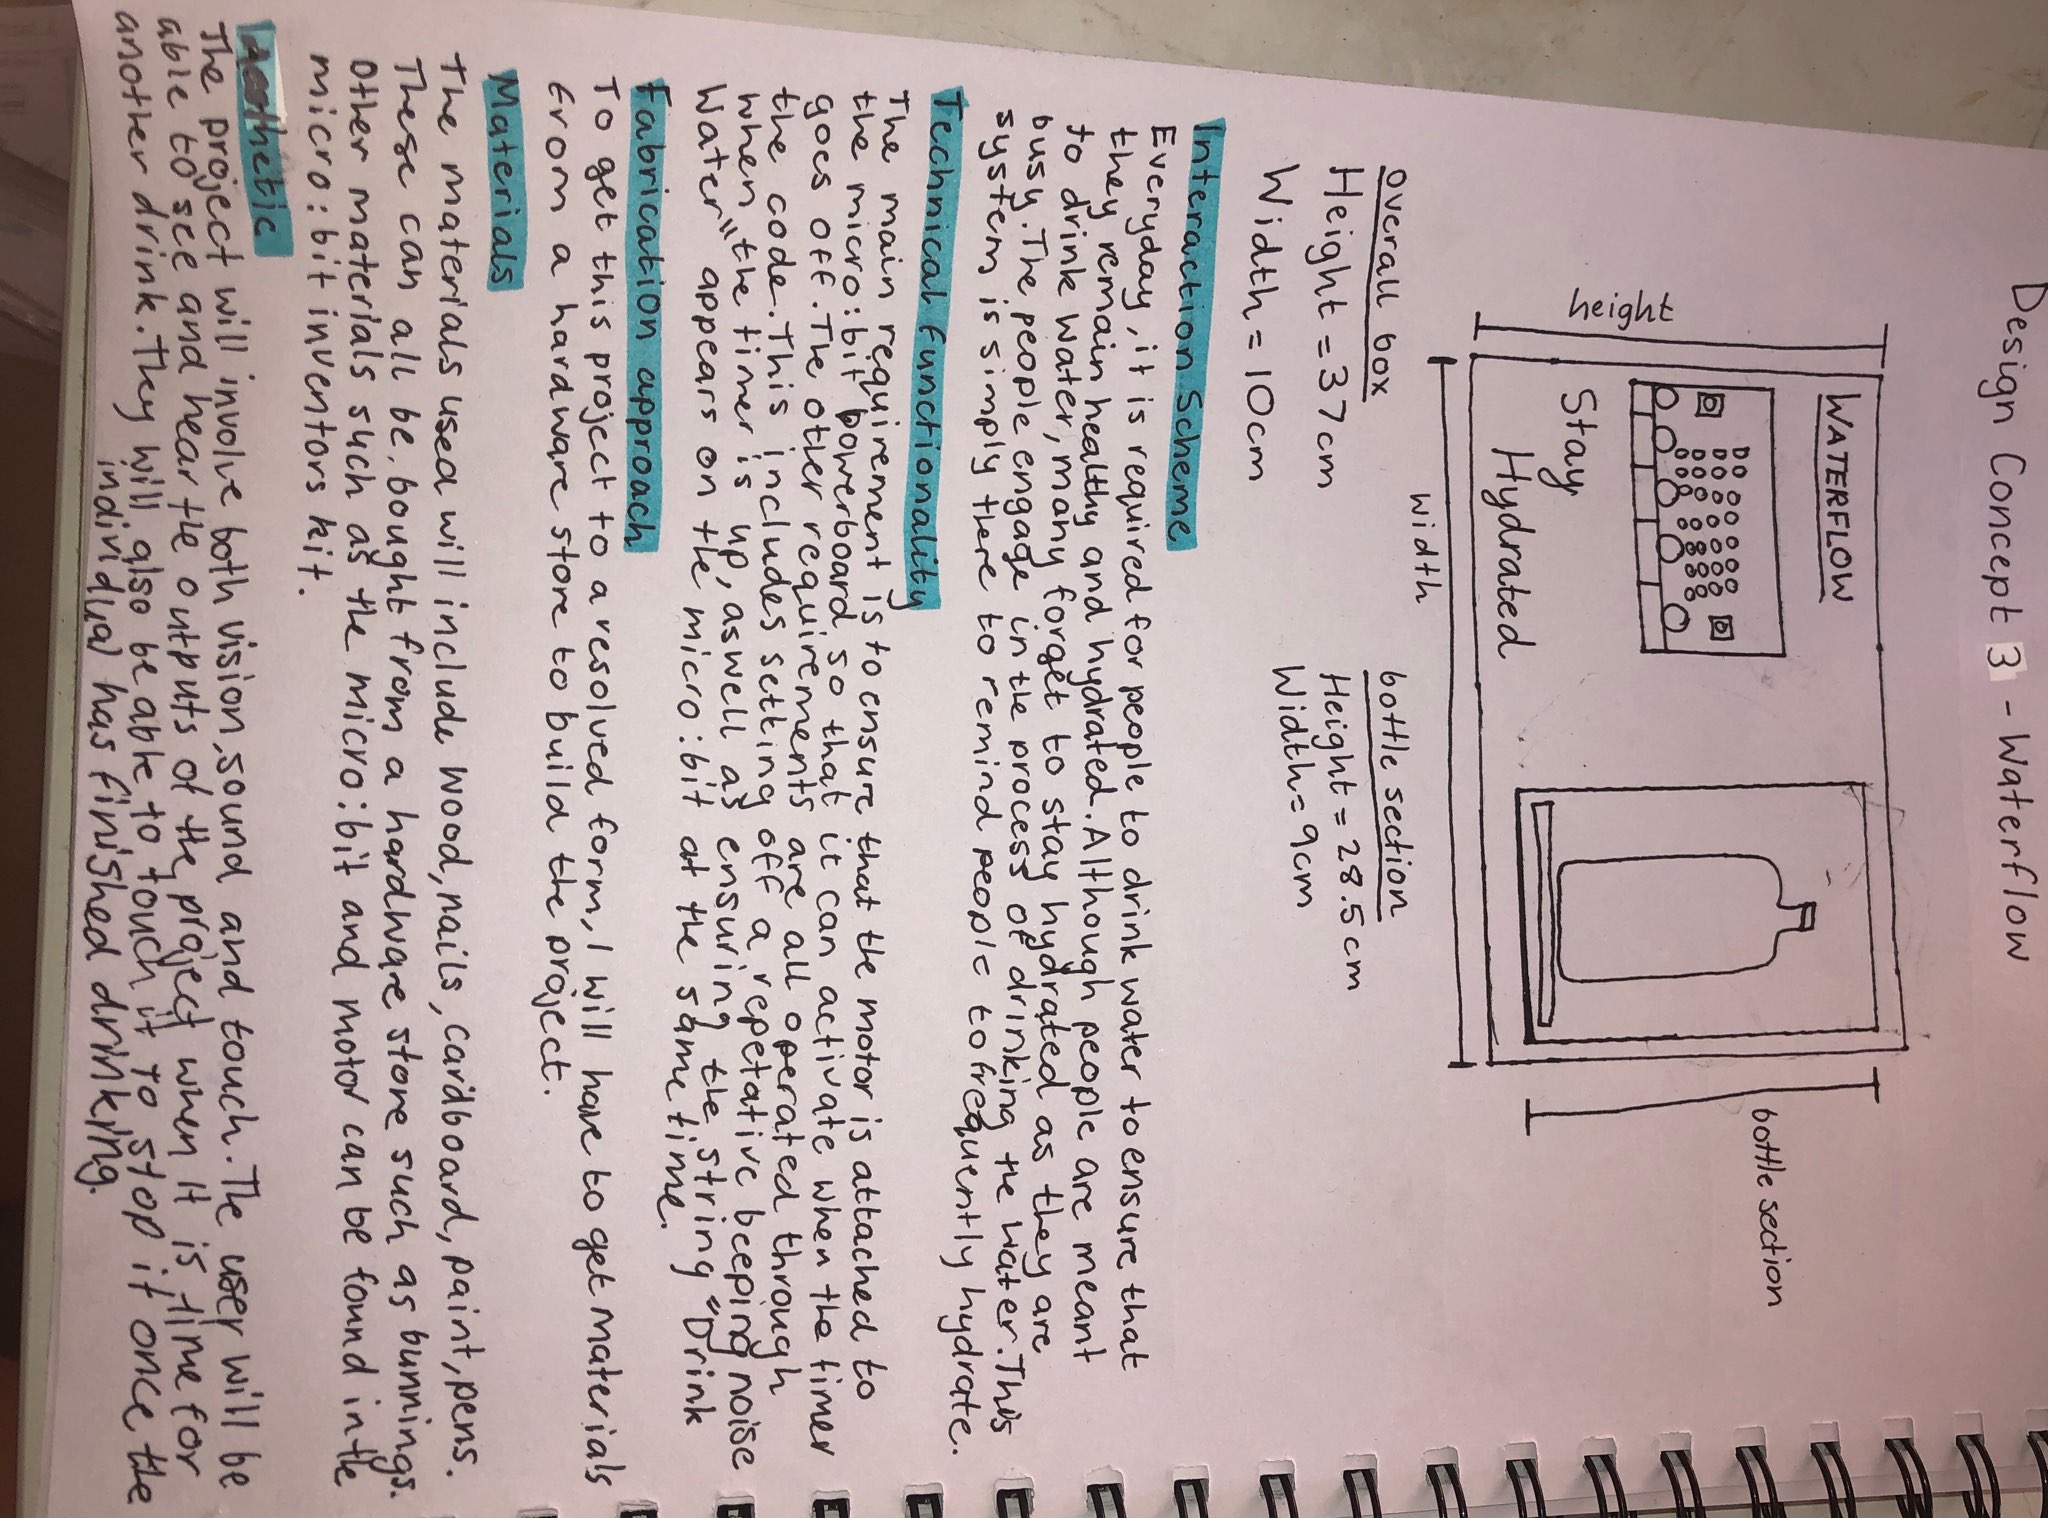 Design Concept 3 - Waterflow
height
WATERFLOW
Stay
Hydrated
width
bottle section
overall box
Height = 37cm
Width = 10cm
bottle section
Height = 28.5cm
Width = 9cm
Interaction Scheme
Everyday, it is required for people to drink water to ensure that
they remain healthy and hydrated. Although people are meant
to drink water, many forget to stay hydrated as they are
busy. The people engage in the process of drinking the water. This
system is simply there to remind people to frequently hydrate.
Technical functionality
The main requirement is to ensure that the motor is attached to
the micro:bit powerboard so that it can activate when the timer
goes off. The other requirements are all operated through
the code. This includes setting off a repetative beeping noise
when the timer is up, aswell as ensuring the string "Drink
Water" appears on the micro:bit at the same time.
Fabrication approach
To get this project to a resolved form, I will have to get materials
from a hardware store to build the project.
Materials
The materials used will include wood, nails, cardboard, paint, pens.
These can all be bought from a hardware store such as bunnings.
Other materials such as the micro:bit and motor can be found in the
micro:bit inventors kit.
Aesthetic
The project will involve both vision, sound and touch. The user will be
able to see and hear the outputs of the project when it is time for
another drink. They will also be able to touch it to stop it once the
individual has finished drinking.